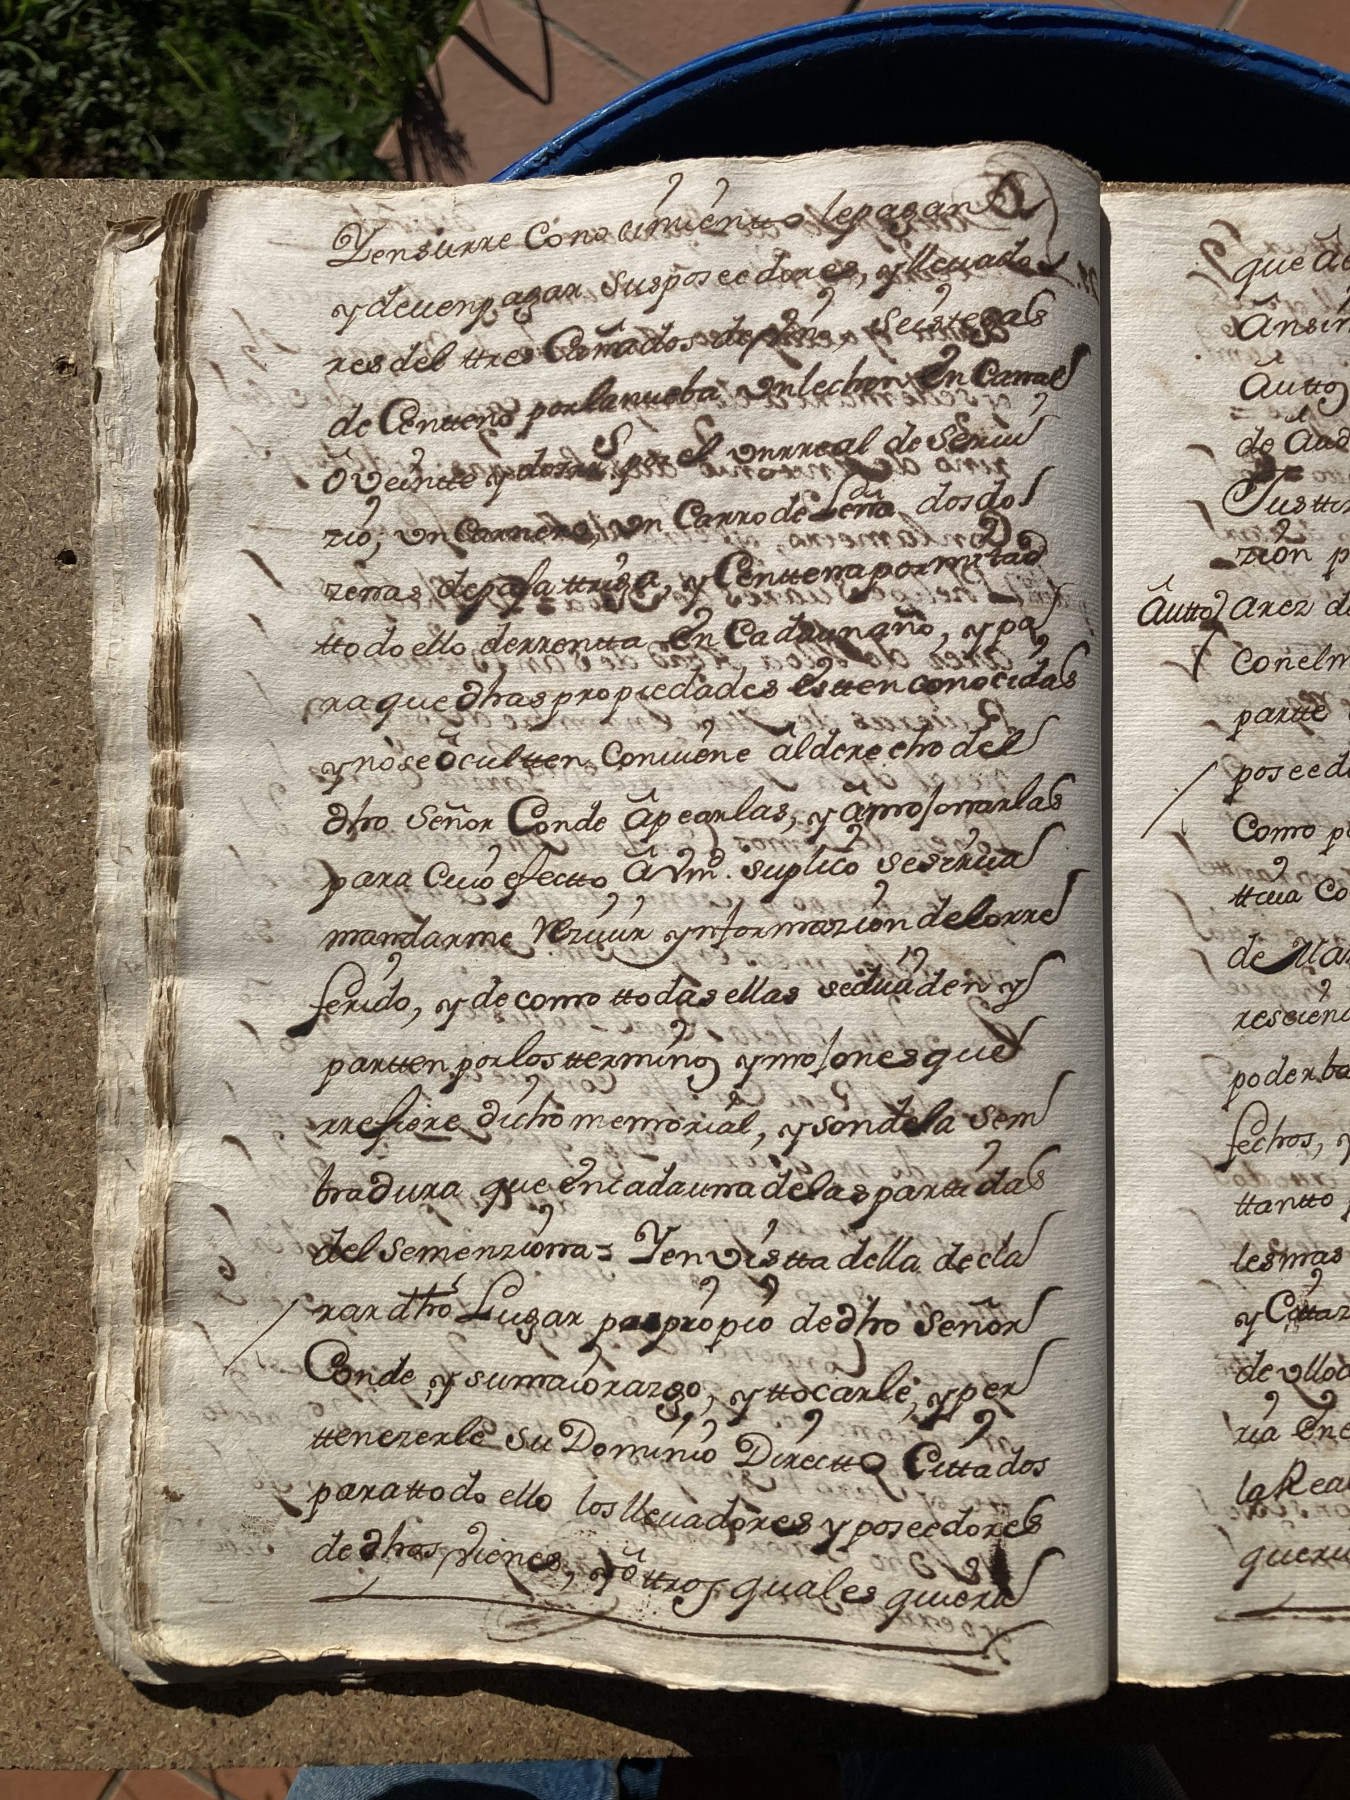 Yensurre Conocimientto lepagan
y deuen pagar sus poseedores, y lleuado
res del ttres Cañados de vino, seis tegas
de Centteno por la nueba un lechon En Canal
ô Veintte y dos rrs. por el Un rreal de Serui
zio, un Carnero, un Carro de Leña dos do
zenas de paja ttriga, y Centtena por mitad
ttodo ello de rrentta En Cada un año, y pa
ra que dhas propiedades estten conocidas
y no se ôcultten Conuiene al derecho del
dho Señor Conde âpearlas, y âmojonarlas
para Cuio efectto â Vmd. suplico se sirua
mandarme Reziuir ynformazion de lo rre
ferido, y de como ttodas ellas se diuiden y
partten por los tterminos y mojones que
rrefiere dicho memorial, y son de la sem
bradura que en cada una de las partidas
del se menziona = Y en Vistta della decla
rar dho Lugar por propio de dho Señor
Conde, y su maiorazgo, y ttocarle, y per
ttenezerle su Dominio Directto Cittados
para ttodo ello los lleuadores y poseedores
de dhos vienes, y ôttros quales quiera
que
Ansi
Auttos
de Aud
Justti
zion p
Autto
arez d
con el m
partte
poseed
Como p
ttiua Co
de Mar
poder ba
fechos, y
ttantto
les mas
y Cittaz
de Ulloa
ria En
la Real